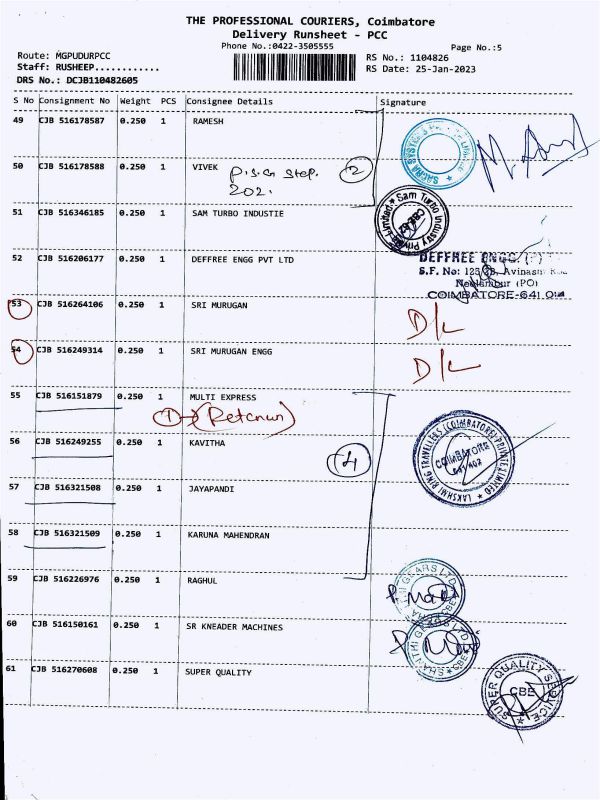 THE PROFESSIONAL COURIERS, Coimbatore
Delivery Runsheet - PCC
Phone No.:0422-3505555
Page No.:5
Route: MGPUDURPCC
RS No.: 1104826
Staff: RUSHEEP............
RS Date: 25-Jan-2023
DRS No.: DCJB110482605
S No Consignment No Weight PCS Consignee Details Signature
49 CJB 516178587 0.250 1 RAMESH
50 CJB 516178588 0.250 1 VIVEK
2
202.
51 CJB 516346185 0.250 1 SAM TURBO INDUSTIE
Sam Turbo Industry Private Limited
52 CJB 516206177 0.250 1 DEFFREE ENGG PVT LTD
DEFFREE ENGG.
S.F. No:
COIMBATORE-641
53 CJB 516264106 0.250 1 SRI MURUGAN
D/L
54 CJB 516249314 0.250 1 SRI MURUGAN ENGG
D/L
55 CJB 516151879 0.250 1 MULTI EXPRESS
1
56 CJB 516249255 0.250 1 KAVITHA
4
LAKSHMI RING TRAVELLERS (COIMBATORE) PRIVATE LIMITED
COIMBATORE
57 CJB 516321508 0.250 1 JAYAPANDI
58 CJB 516321509 0.250 1 KARUNA MAHENDRAN
59 CJB 516226976 0.250 1 RAGHUL
60 CJB 516150161 0.250 1 SR KNEADER MACHINES
61 CJB 516270608 0.250 1 SUPER QUALITY
SUPER QUALITY SERVICE
CBE